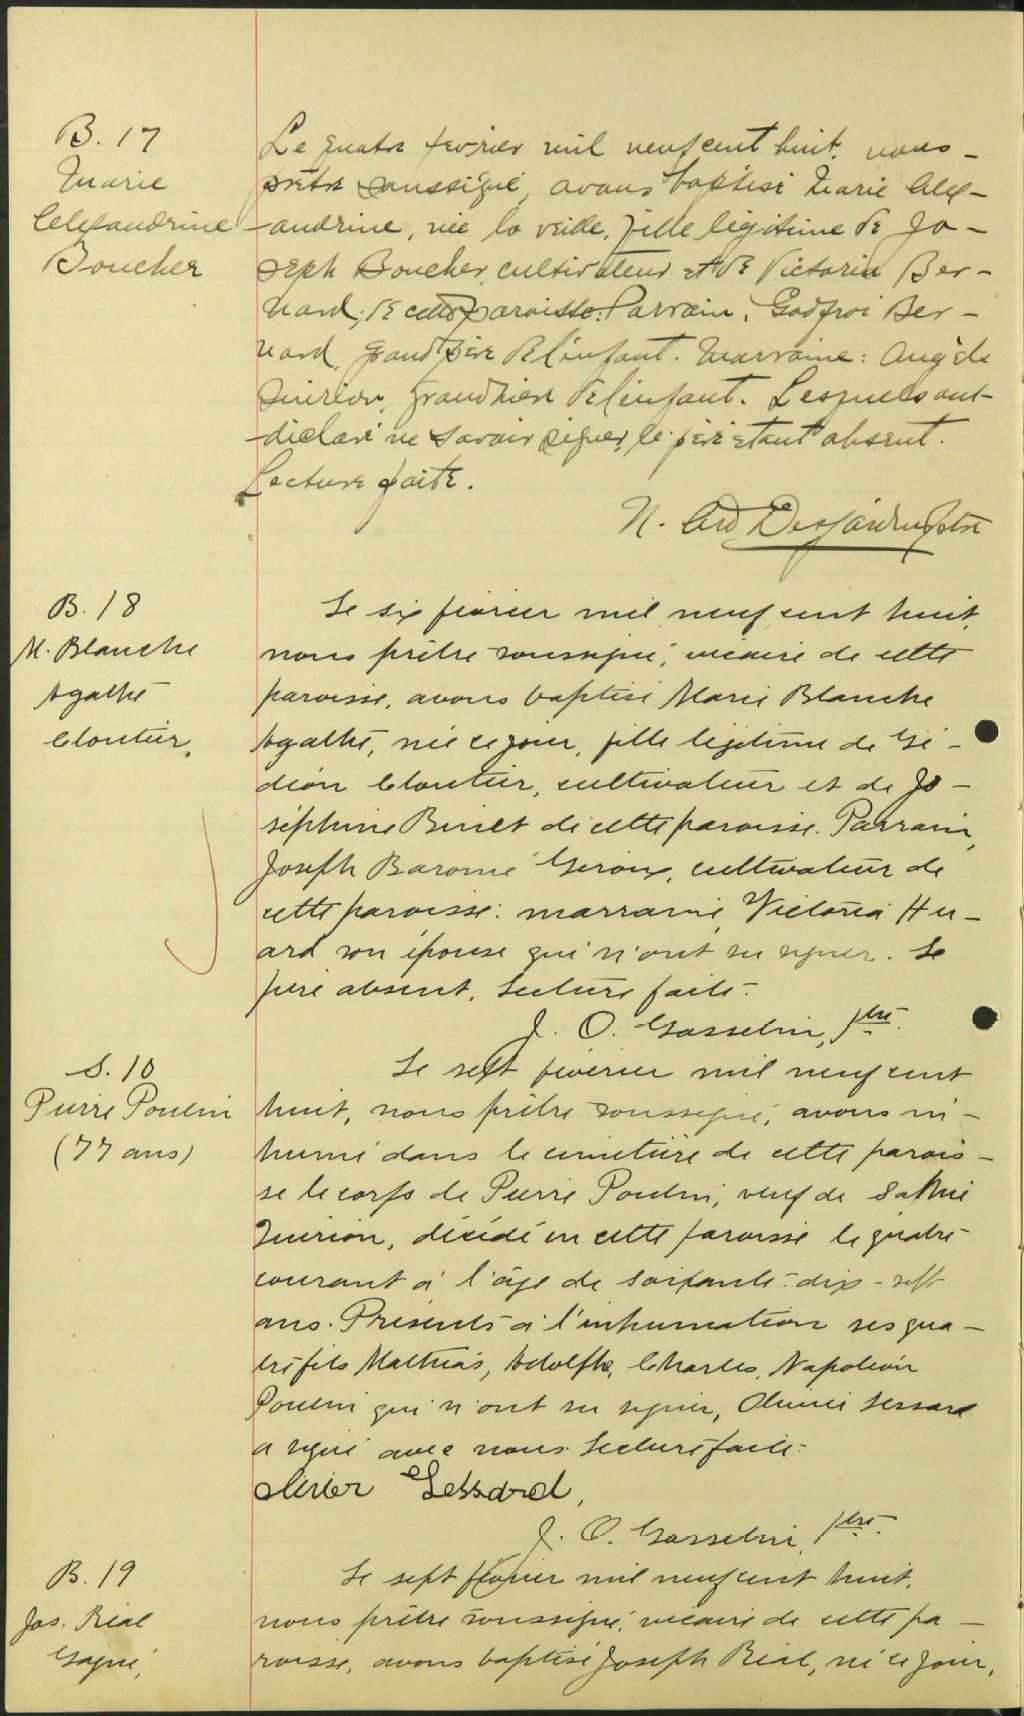 B. 17
Marie
Alexandrine
Boucher
Le quatre février mil neuf cent huit, nous
prêtre soussigné, avons baptisé Marie Alex-
andrine, née la veille, fille légitime de Jo-
seph Boucher, cultivateur et de Victoria Ber-
nard, de cette paroisse. Parrain, Godfroi Ber-
nard, grand père de l'enfant. Marraine: Angèle
Quirion, grand'mère de l'enfant. Lesquels ont
déclaré ne savoir signer, le père étant absent.
Lecture faite.
N. Desjardins, Ptre
B. 18
M. Blanche
Agathe
Cloutier.
Le six février mil neuf cent huit,
nous prêtre soussigné, vicaire de cette
paroisse, avons baptisé Marie Blanche
Agathe, née ce jour, fille légitime de Gé-
déon Cloutier, cultivateur et de Jo-
séphine Binet de cette paroisse. Parrain,
Joseph Baromé Giroux, cultivateur de
cette paroisse: marraine, Victoria Hu-
ard son épouse qui n'ont su signer. Le
père absent. Lecture faite.
J. O. Gosselin, ptre.
S. 10
Pierre Poulin
(77 ans)
Le sept février mil neuf cent
huit, nous prêtre soussigné, avons in-
humé dans le cimetière de cette parois-
se le corps de Pierre Poulin, veuf de
Quirion, décédé en cette paroisse le quatre
courant à l'âge de soixante-dix-sept
ans. Présents à l'inhumation ses qua-
tre fils Mathias, Adolphe, Charles, Napoléon
Poulin qui n'ont su signer, Olivier Lessard
a signé avec nous. Lecture faite.
Olivier Lessard,
J. O. Gosselin, ptre.
B. 19
Jos. Réal
Gagné,
Le sept février mil neuf cent huit,
nous prêtre soussigné, vicaire de cette pa-
roisse, avons baptisé Joseph Réal, né ce jour,